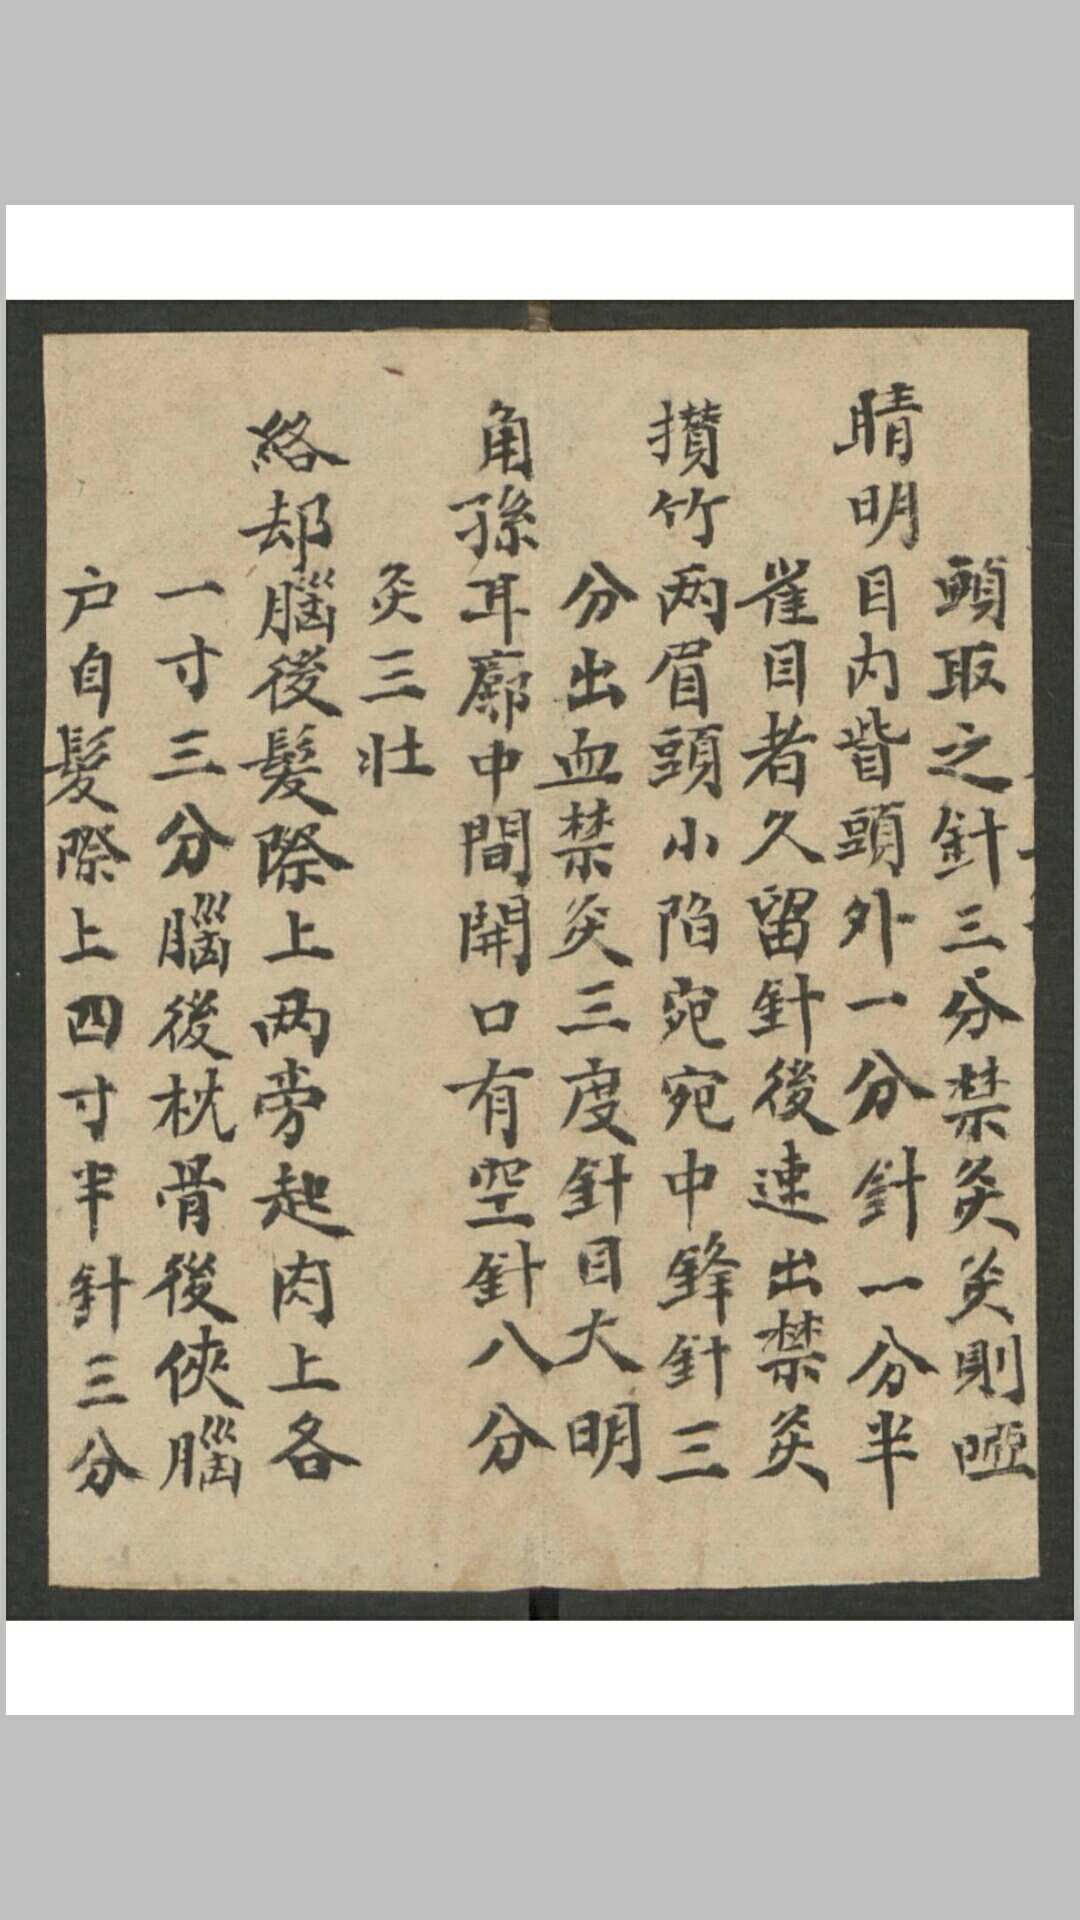 頭取之針三分禁灸灸則啞
睛明目内眥頭外一分針一分半
雀目者久留針後速出禁灸
攅竹两眉頭小陷宛宛中鋒針三
分出血禁灸三度針目大明
角孫耳廓中間開口有空針八分
灸三壮
絡却腦後髮際上两旁起肉上各
一寸三分腦後枕骨後俠腦
户自髮際上四寸半針三分